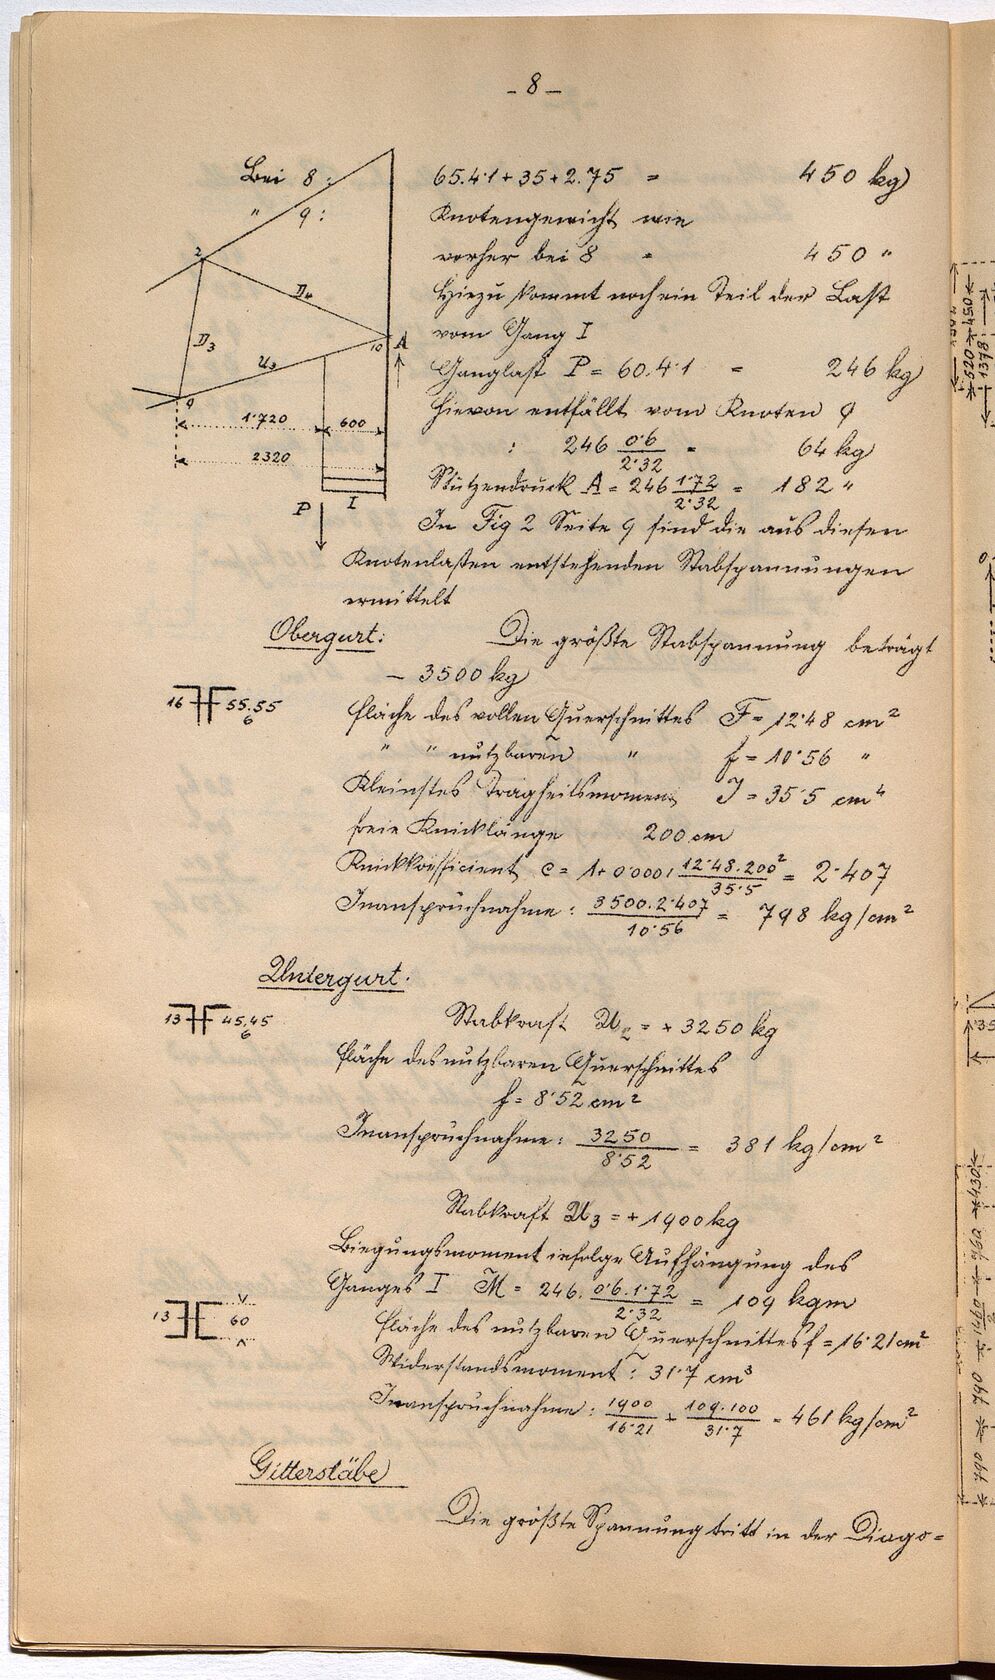 - 8 -
Bei 8: 65.4·1 + 35 + 2.75 = 450 kg
" 9: Knotengewicht wie
vorher bei 8 = 450 "
Hiezu kommt noch ein Teil der Last
vom Gang I
Ganglast P = 60.4·1 = 246 kg
Hievon entfällt vom Knoten 9
: 246 0·6/2·32 = 64 kg
Stützendruck A = 246 1·72/2·32 = 182 "
2
D4
D3
U3
10
A
9
1·720
600
2320
P
I
In Fig 2 Seite 9 sind die aus diesen
Knotenlasten entstehenden Stabspannungen
ermittelt
Obergurt: Die größte Stabspannung beträgt
- 3500 kg
16 55.55
6
Fläche des vollen Querschnittes F = 12·48 cm²
" " nutzbaren " f = 10·56 "
Kleinstes Trägheitsmoment J = 35·5 cm⁴
freie Knicklänge 200 cm
Knickkoefficient c = 1 + 0·0001 12·48.200²/35·5 = 2·407
Inanspruchnahme: 3500.2·407/10·56 = 798 kg/cm²
Untergurt.
13 45.45
6
Stabkraft U2 = + 3250 kg
Fläche des nutzbaren Querschnittes
f = 8·52 cm²
Inanspruchnahme: 3250/8·52 = 381 kg/cm²
Stabkraft U3 = + 1900 kg
Biegungsmoment infolge Aufhängung des
Ganges I M = 246. 0·6.1·72/2·32 = 109 kgm
13 60
Fläche des nutzbaren Querschnittes f = 16·21 cm²
Widerstandsmoment: 31·7 cm³
Inanspruchnahme: 1900/16·21 + 109.100/31·7 = 461 kg/cm²
Gitterstäbe
Die größte Spannung tritt in der Diago=
450
520
1378
430
960
1460
790